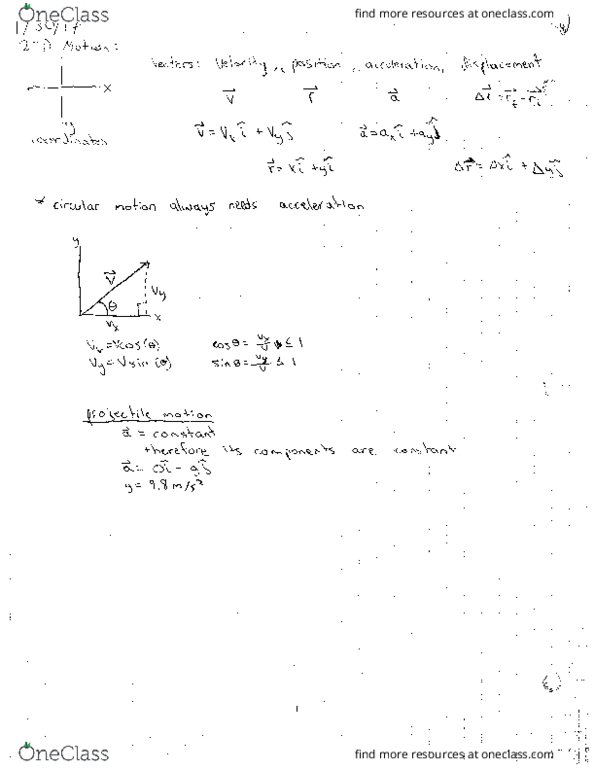 OneClass
find more resources at oneclass.com
2-D Motion:
Vectors: Velocity, position, acceleration, displacement
x
y
coordinates
v⃗ r⃗ a⃗ Δr⃗ = r⃗f - r⃗i
v⃗ = Vxî + Vyĵ a⃗ = axî + ayĵ
r⃗ = xî + yĵ Δr⃗ = Δxî + Δyĵ
* circular motion always needs acceleration
y
V⃗
Vy
θ
Vx
x
Vx = Vcos(θ) cosθ = Vx/V ≤ 1
Vy = Vsin(θ) sinθ = Vy/V ≤ 1
projectile motion
a⃗ = constant
therefore its components are constant
a⃗ = 0î - gĵ
g = 9.8 m/s²
OneClass
find more resources at oneclass.com